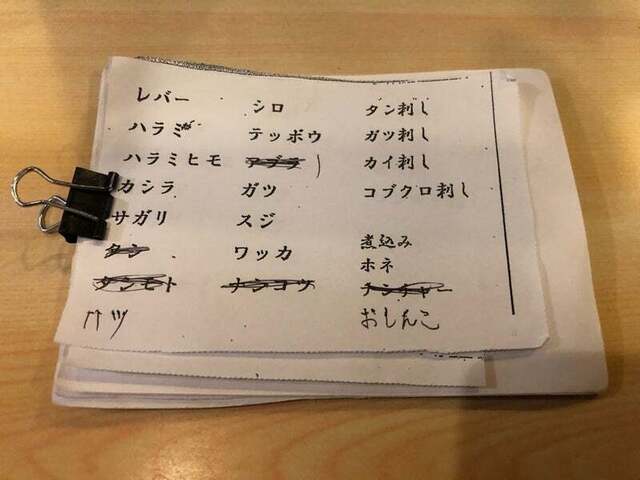 レバー
ハラミ
ハラミヒモ
カシラ
サガリ
タン
タンモト
シロ
テッポウ
アブラ
ガツ
スジ
ワッカ
ナンコツ
タン刺し
ガツ刺し
カイ刺し
コブクロ刺し
煮込み
ホネ
おしんこ